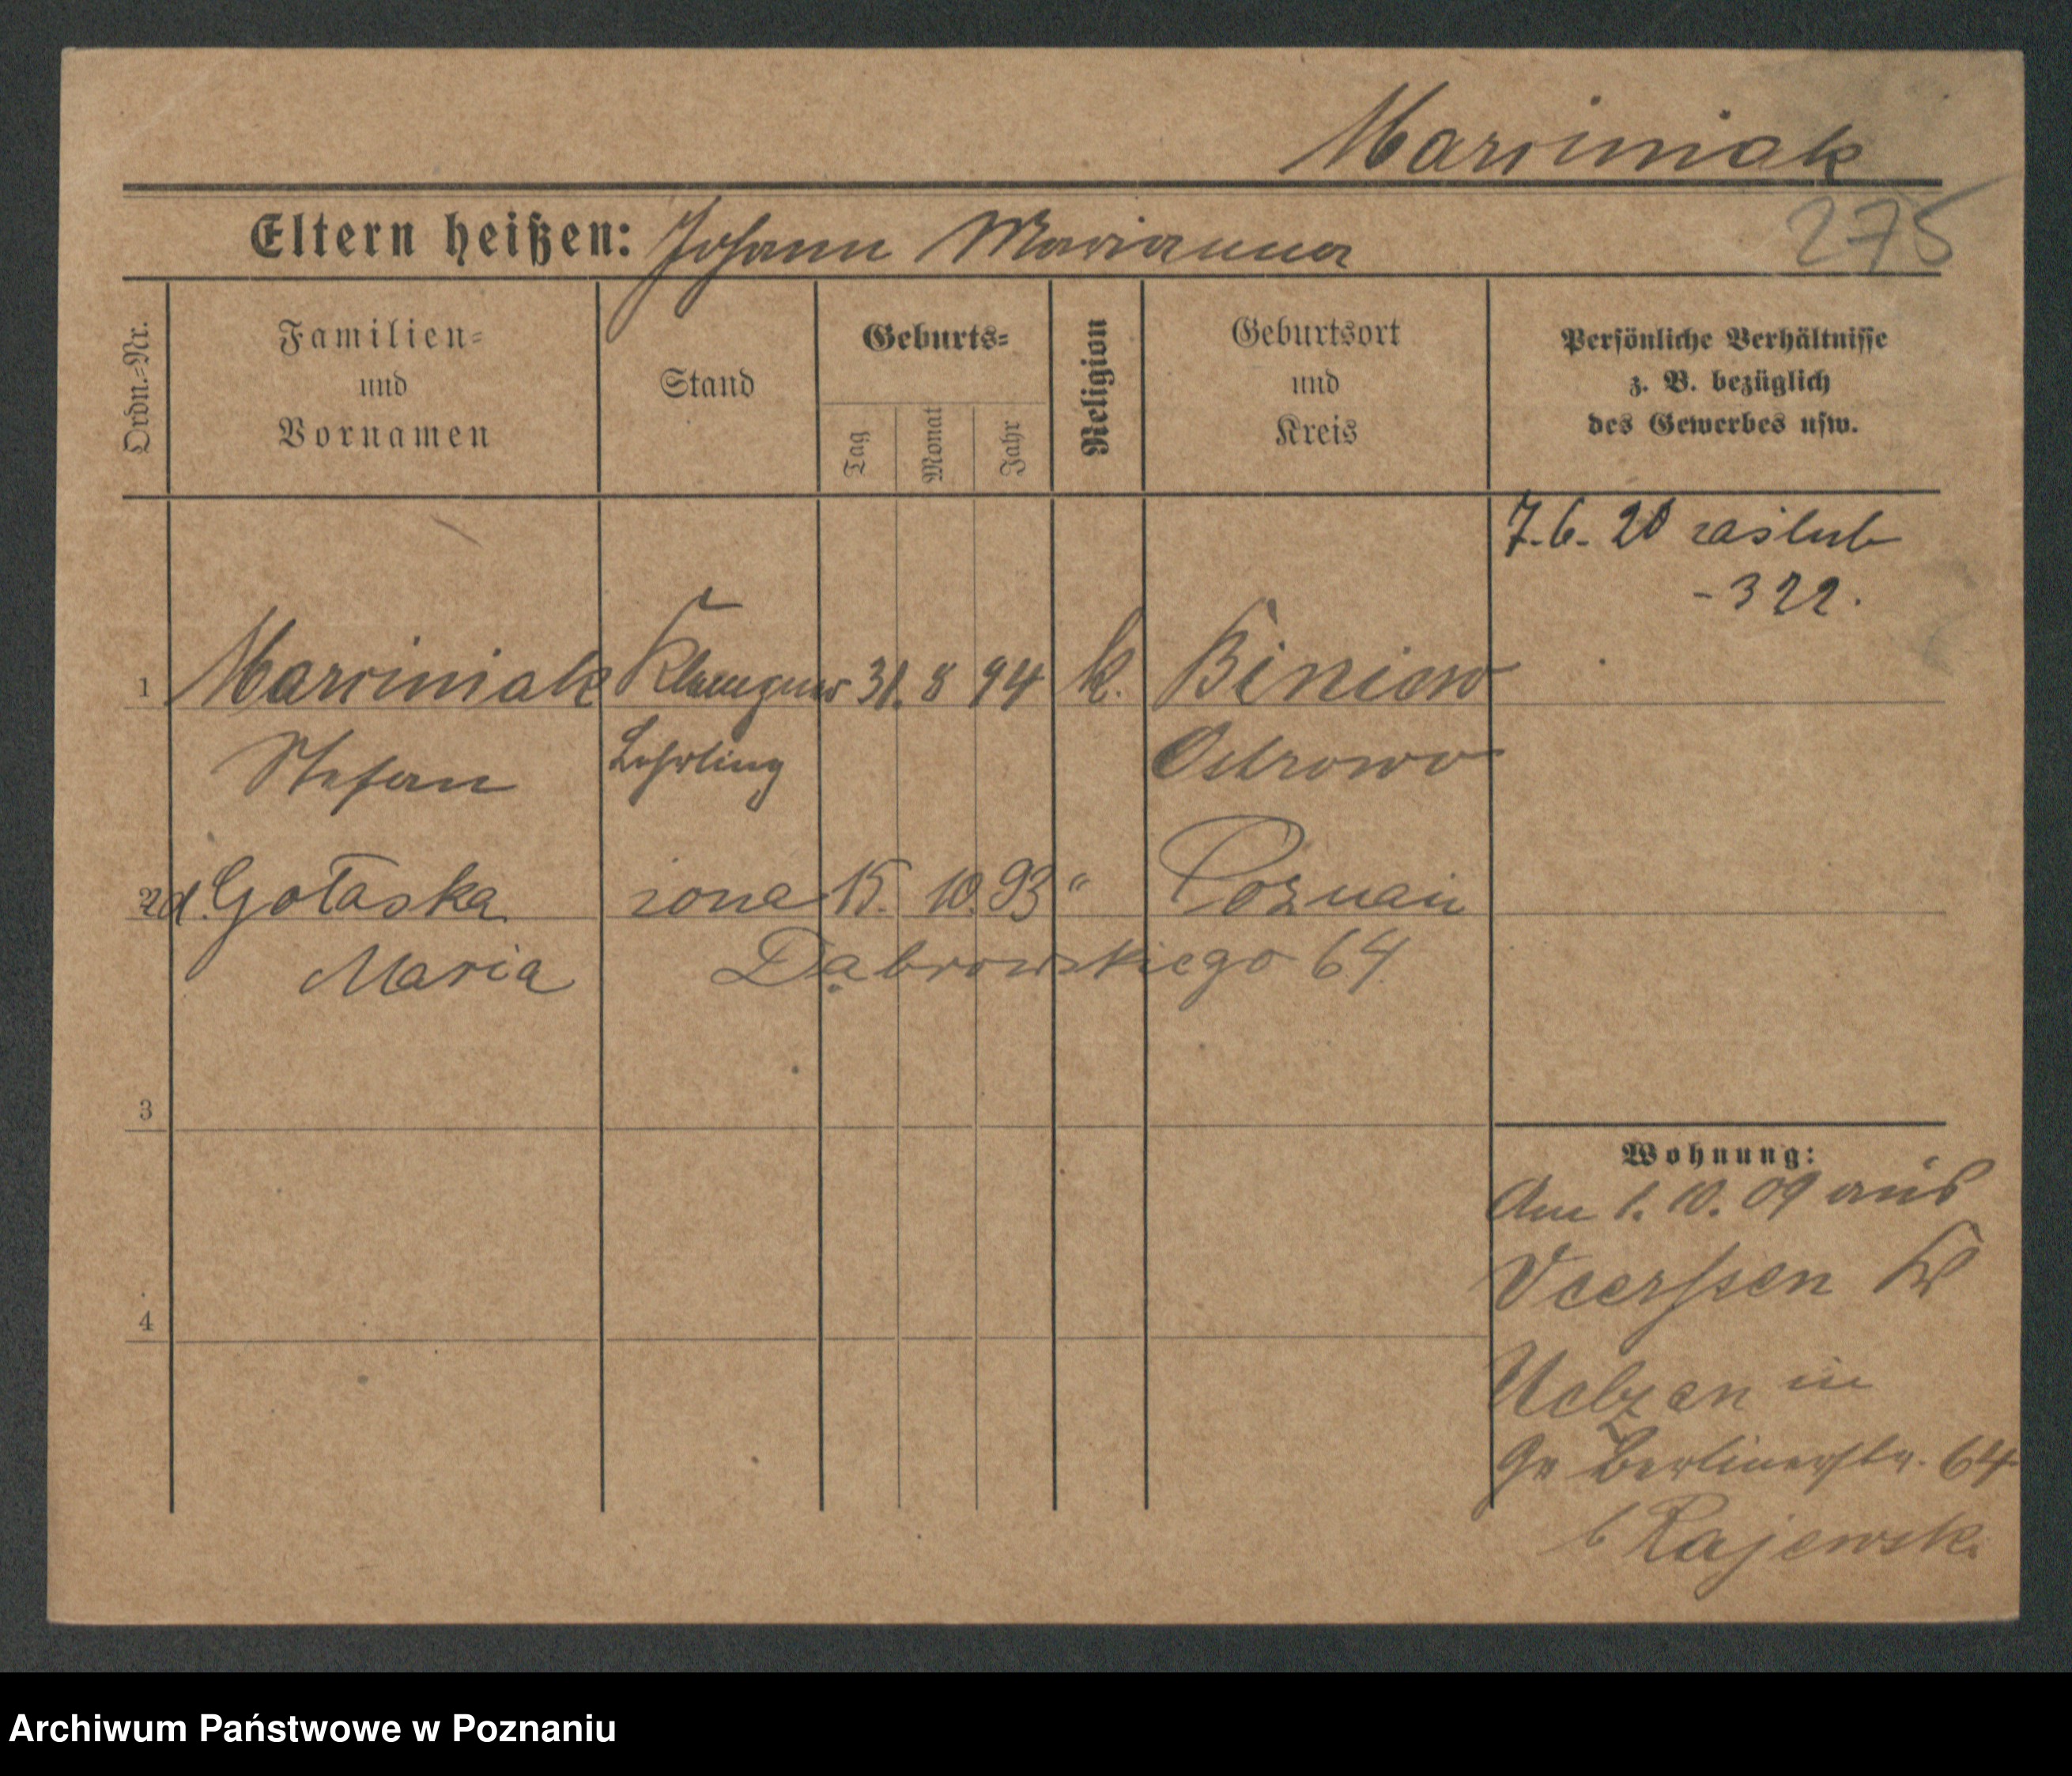 Marciniak
275
Eltern heißen: Johann Marianna
Ordn.-Nr.
Familien-
und
Vornamen
Stand
Geburts-
Tag
Monat
Jahr
Religion
Geburtsort
und
Kreis
Persönliche Verhältnisse
z. B. bezüglich
des Gewerbes usw.
7.6.20 zaślub
- 322.
1 Marciniak Klempner 31. 8 94 k. Biniew
Stefan Lehrling Ostrowo
2 Gołaska żona 15. 10. 93 " Poznań
Maria Dąbrowskiego 64
3
4
Wohnung:
Am 1. 10. 09 aus
Veerssen Kr
Uelzen in
Gr Berlinerstr. 64
b Rajewsk.
Archiwum Państwowe w Poznaniu